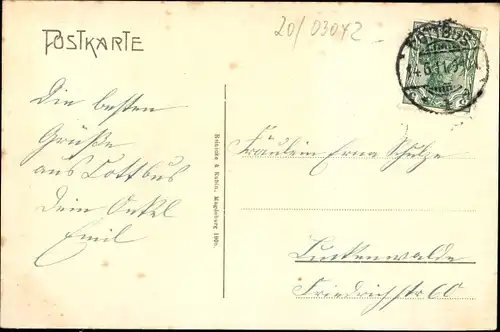 20/03042
POSTKARTE
COTTBUS
Die besten
Grüße
aus Cottbus
Dein Onkel
Emil
Reinicke & Rubin, Magdeburg 1905.
Fräulein Erna Schulze
Luckenwalde
Friedrichstr 60